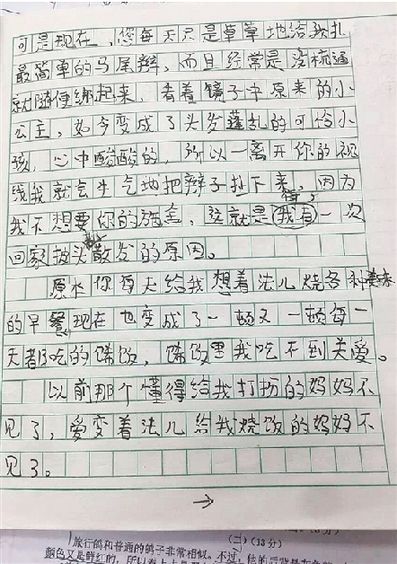 可是现在，您每天只是草草地给我扎
最简单的马尾辫，而且经常是没梳通
就随便绑起来，看着镜子中原来的小
公主，如今变成了头发蓬乱的可怜小
孩，心中酸酸的，所以一离开你的视
线我就会生气地把辫子扯下来，因为
我不想要你的掩盖，这就是我有一次
回家披头散发的原因。
原来你每天给我想着法儿烧各种美味
的早餐现在也变成了一顿又一顿每一
天都吃的馊饭，馊饭里我吃不到关爱。
以前那个懂得给我打扮的妈妈不
见了，爱变着法儿给我烧饭的妈妈不
见了。
→
(二)(13分)
旅行鸽和普通的鸽子非常相似。不过，他的